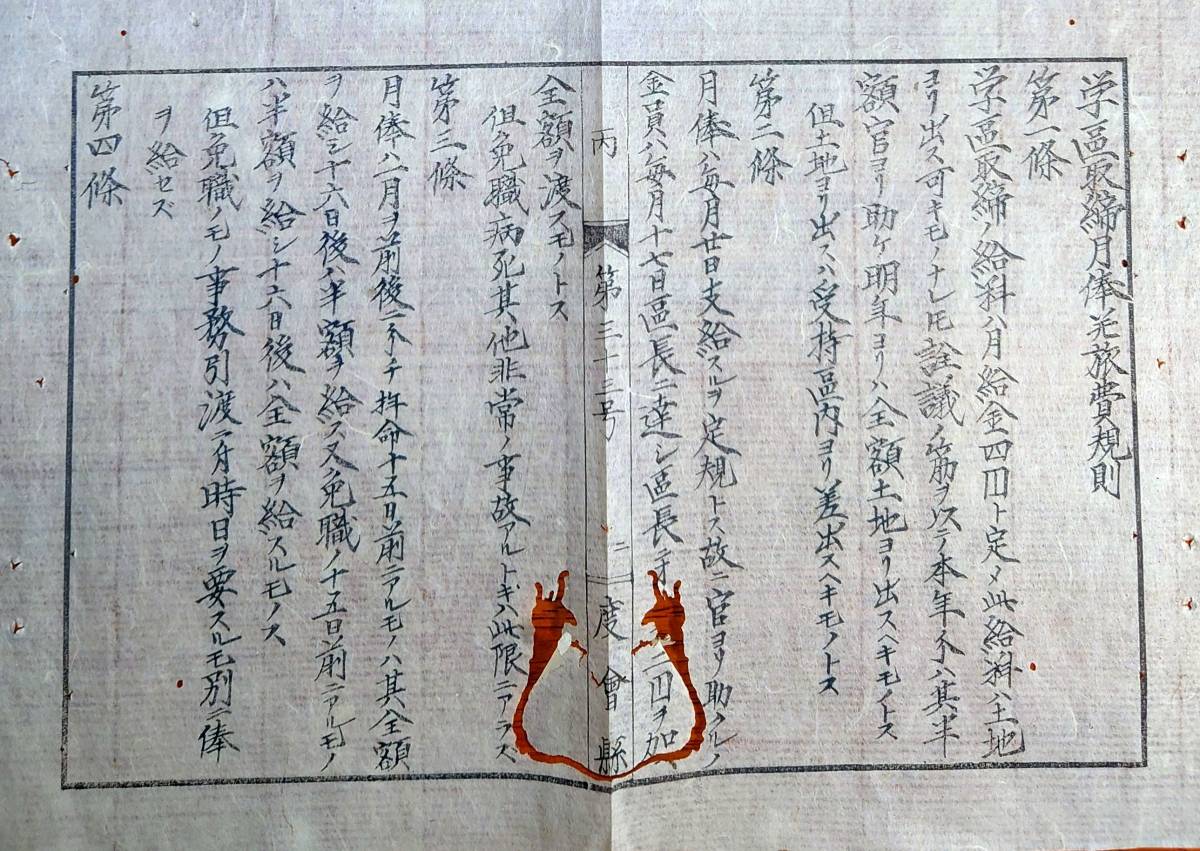 学區取締月俸並旅費規則
第一條
学區取締ノ給料ハ月給金四円ト定メ此給料ハ土地
ヨリ出ス可キモノナレ𪜈詮議ノ筋ヲ以テ本年分ハ其半
額官ヨリ助ケ明年ヨリハ全額土地ヨリ出スヘキモノトス
但土地ヨリ出スハ受持區内ヨリ差出スヘキモノトス
第二條
月俸ハ毎月廿日支給スルヲ定規トス故ニ官ヨリ助クルノ
金員ハ毎月十七日區長ニ達シ區長ニ於 二円ヲ加
丙 第三十三号 二 度會縣
全額ヲ渡スモノトス
但免職病死其他非常ノ事故アルトキハ此限ニアラス
第三條
月俸ハ一月ヲ前後ニ分チ拝命十五日前ニアルモノハ其全額
ヲ給シ十六日後ハ半額ヲ給ス又免職ノ十五日前ニアルモノ
ハ半額ヲ給シ十六日後ハ全額ヲ給スルモノス
但免職ノモノ事務引渡ニ付時日ヲ要スルモ別ニ俸
ヲ給セズ
第四條